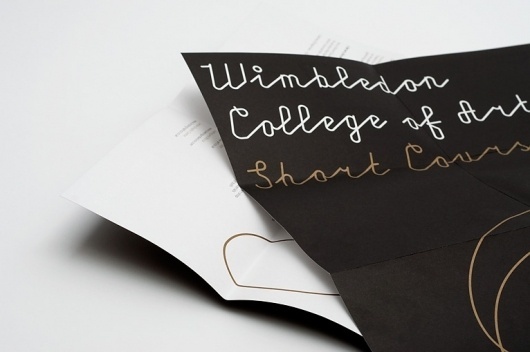 Wimbledon
College of Art
Short Cours